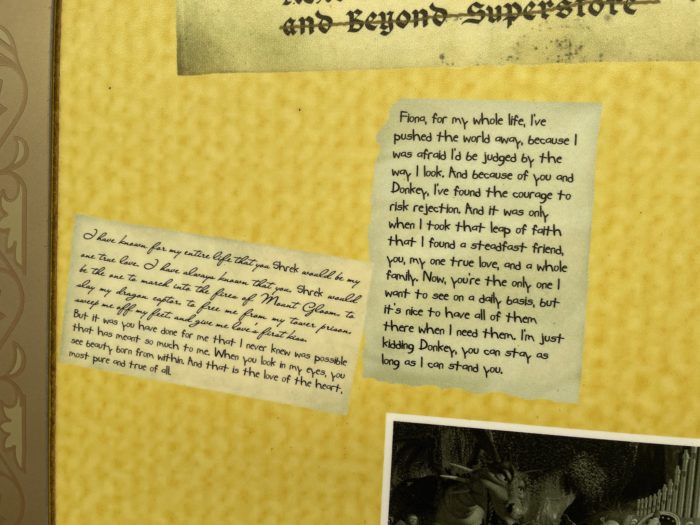 and Beyond Superstore
Fiona, for my whole life, I've
pushed the world away, because I
was afraid I'd be judged by the
way I look. And because of you and
Donkey, I've found the courage to
risk rejection. And it was only
when I took that leap of faith
that I found a steadfast friend,
you, my one true love, and a whole
family. Now, you're the only one I
want to see on a daily basis, but
it's nice to have all of them
there when I need them. I'm just
kidding Donkey, you can stay as
long as I can stand you.
I have known for my entire life that you Shrek would be my
one true love. I have always known that you Shrek would
be the one to march into the fires of Mount Gloom to
slay my dragon captor to free me from my tower prison
sweep me off my feet and give me love's first kiss.
But it was you have done for me that I never knew was possible
that has meant so much to me. When you look in my eyes, you
see beauty born from within. And that is the love of the heart,
most pure and true of all.